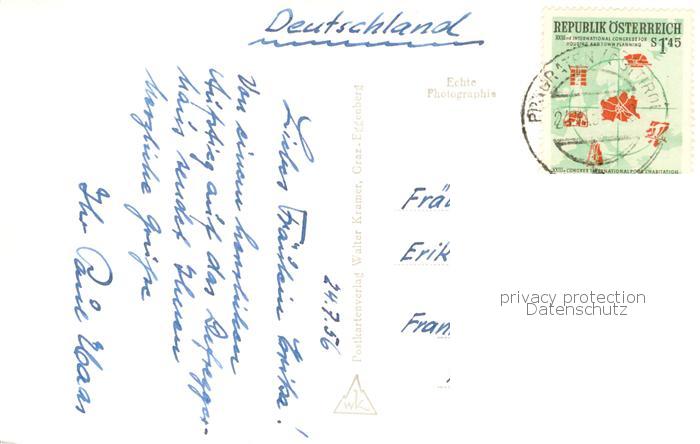 Deutschland
REPUBLIK ÖSTERREICH
XXIIIrd INTERNATIONAL CONGRESS FOR
HOUSING AND TOWN PLANNING
S 1·45
PRÄGRATEN (OSTTIROL)
XXIIIe CONGRES INTERNATIONAL POUR L'HABITATION
Echte
Photographie
24.7.56
Liebes Fräulein Erika!
Von einem herrlichen
Aufstieg auf das Defregger-
Haus sendet Ihnen
herzliche Grüße
Ihr Paul Haas
Postkartenverlag Walter Kramer, Graz-Eggenberg
WK
Fräu
Erik
Fran
privacy protection
Datenschutz